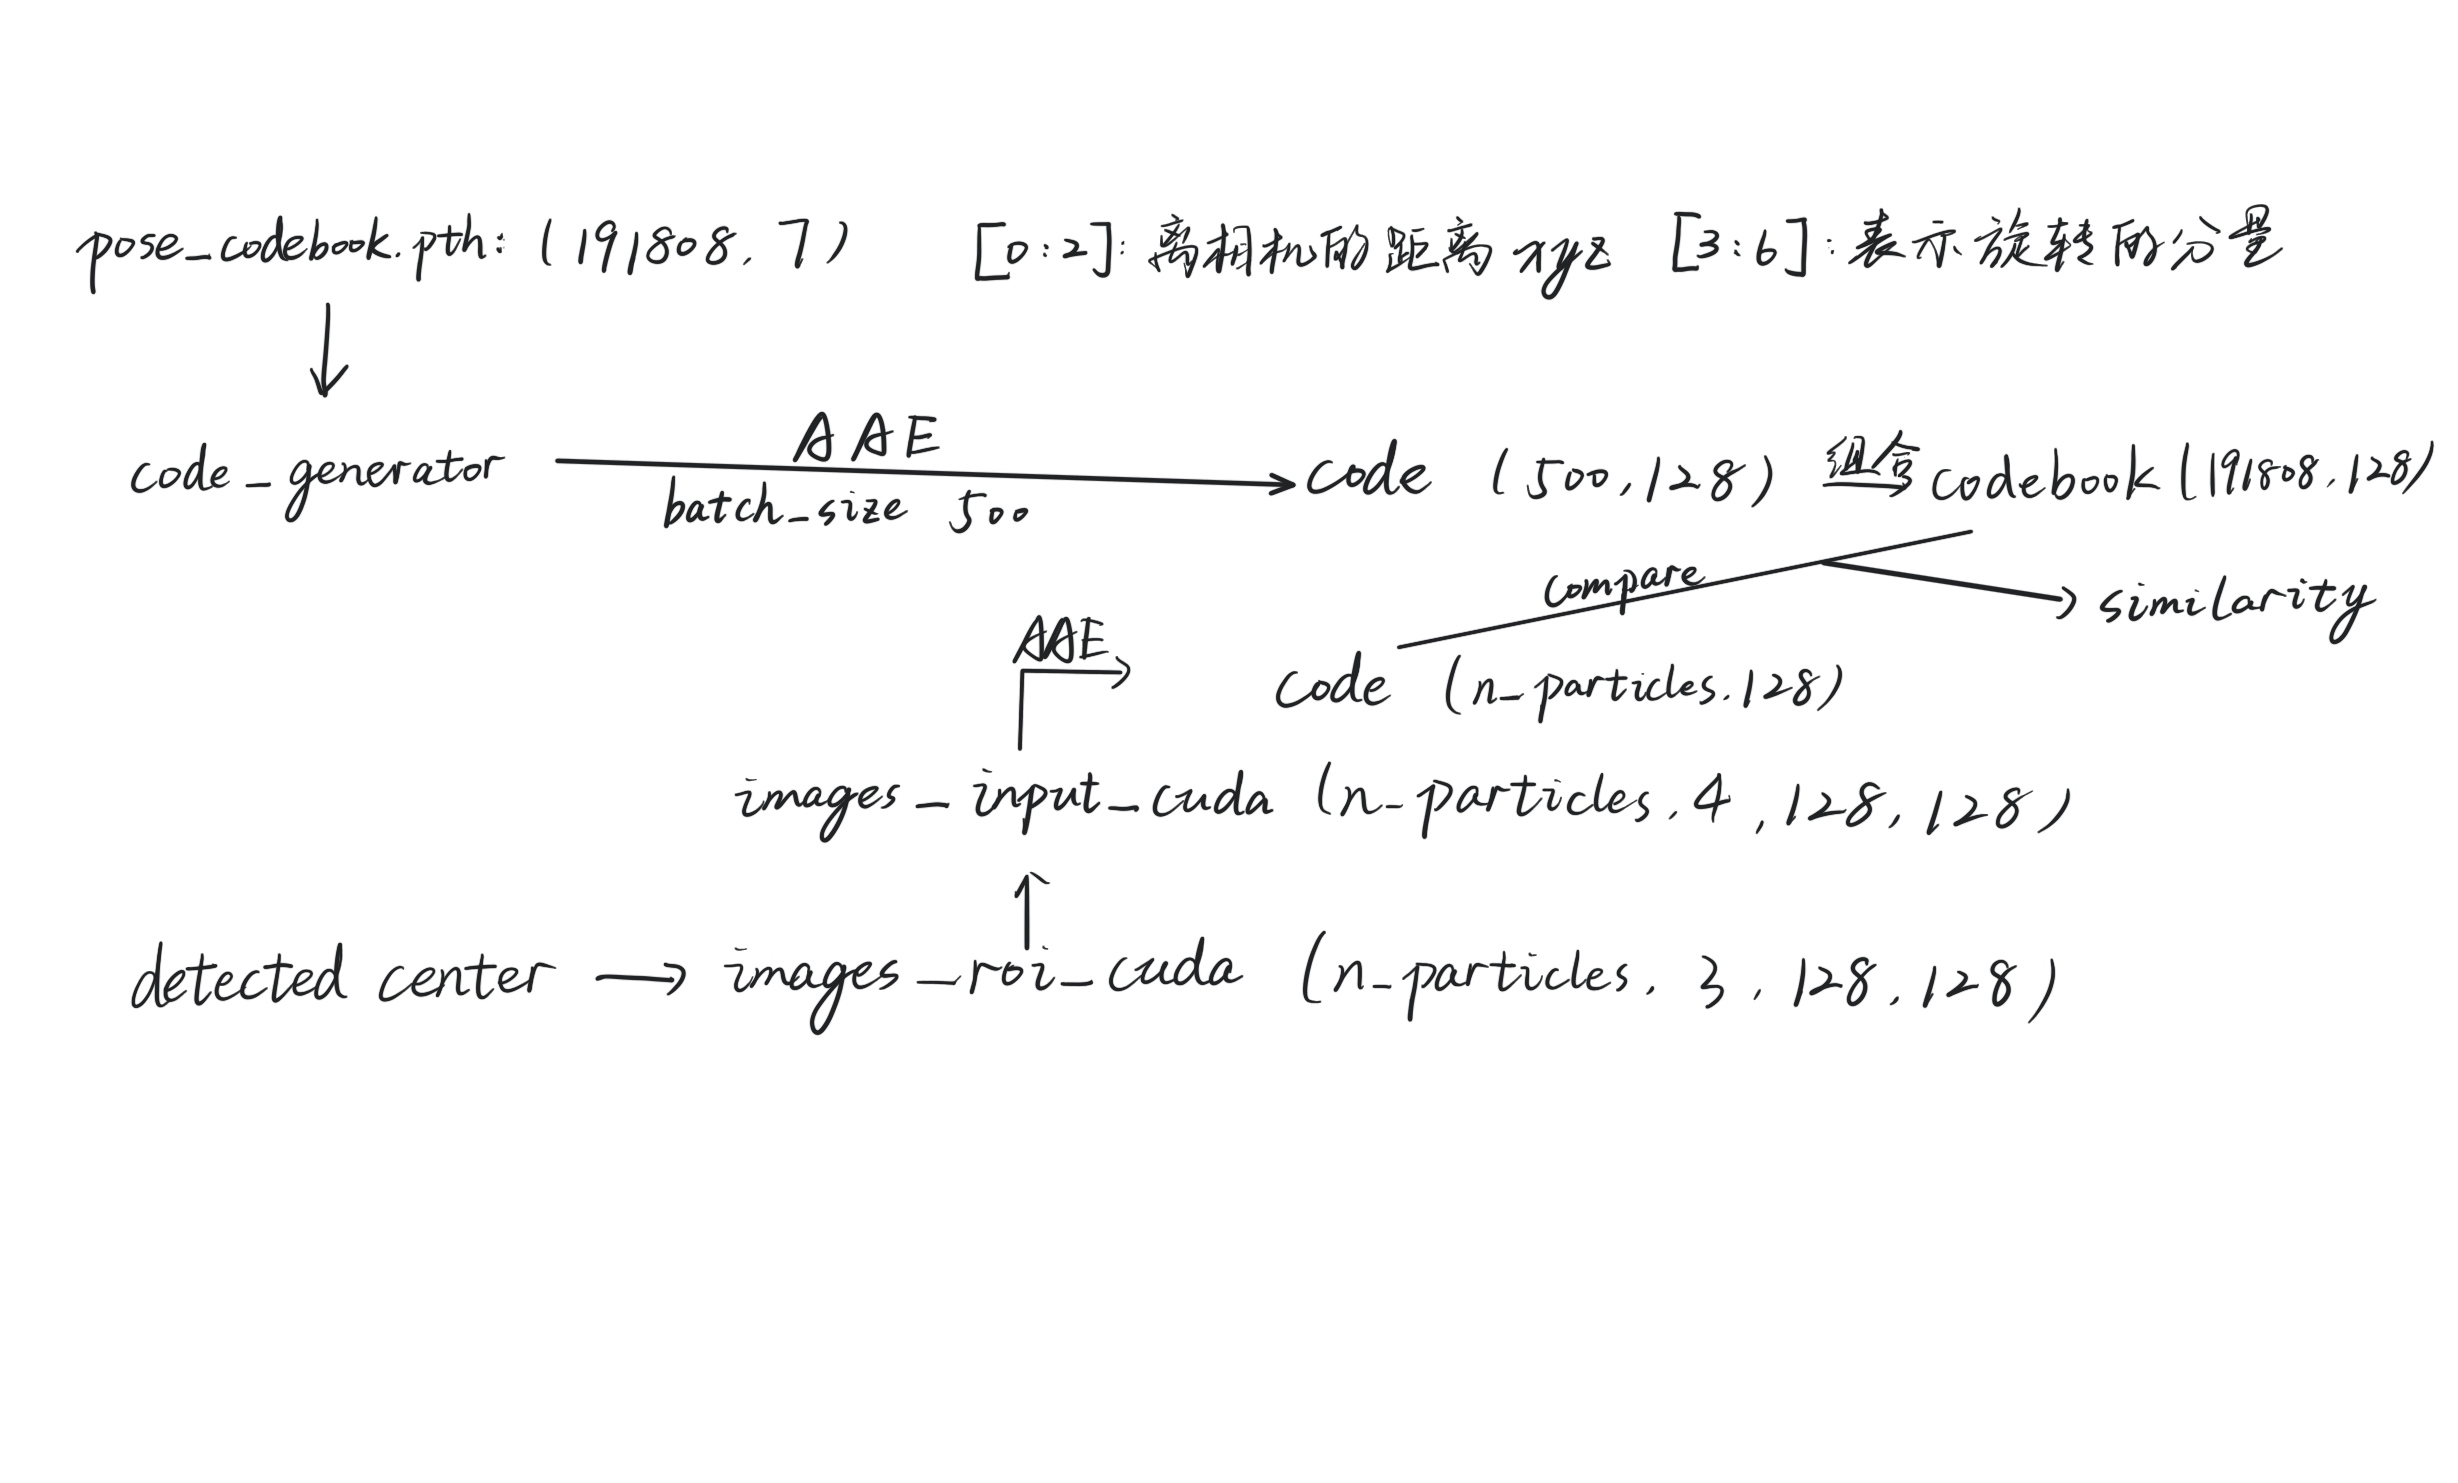 pose_codebook.pth: (19808, 7) [0:2]: 离相机的距离 xyz [3:6]: 表示旋转的分量
code_generator AAE batch_size 500 code (500, 128) 组合 codebook (19808, 128)
compare
similarity
AAE
code (n_particles, 128)
images_input_cuda (n_particles, 4, 128, 128)
detected center images_roi_cuda (n_particles, 3, 128, 128)